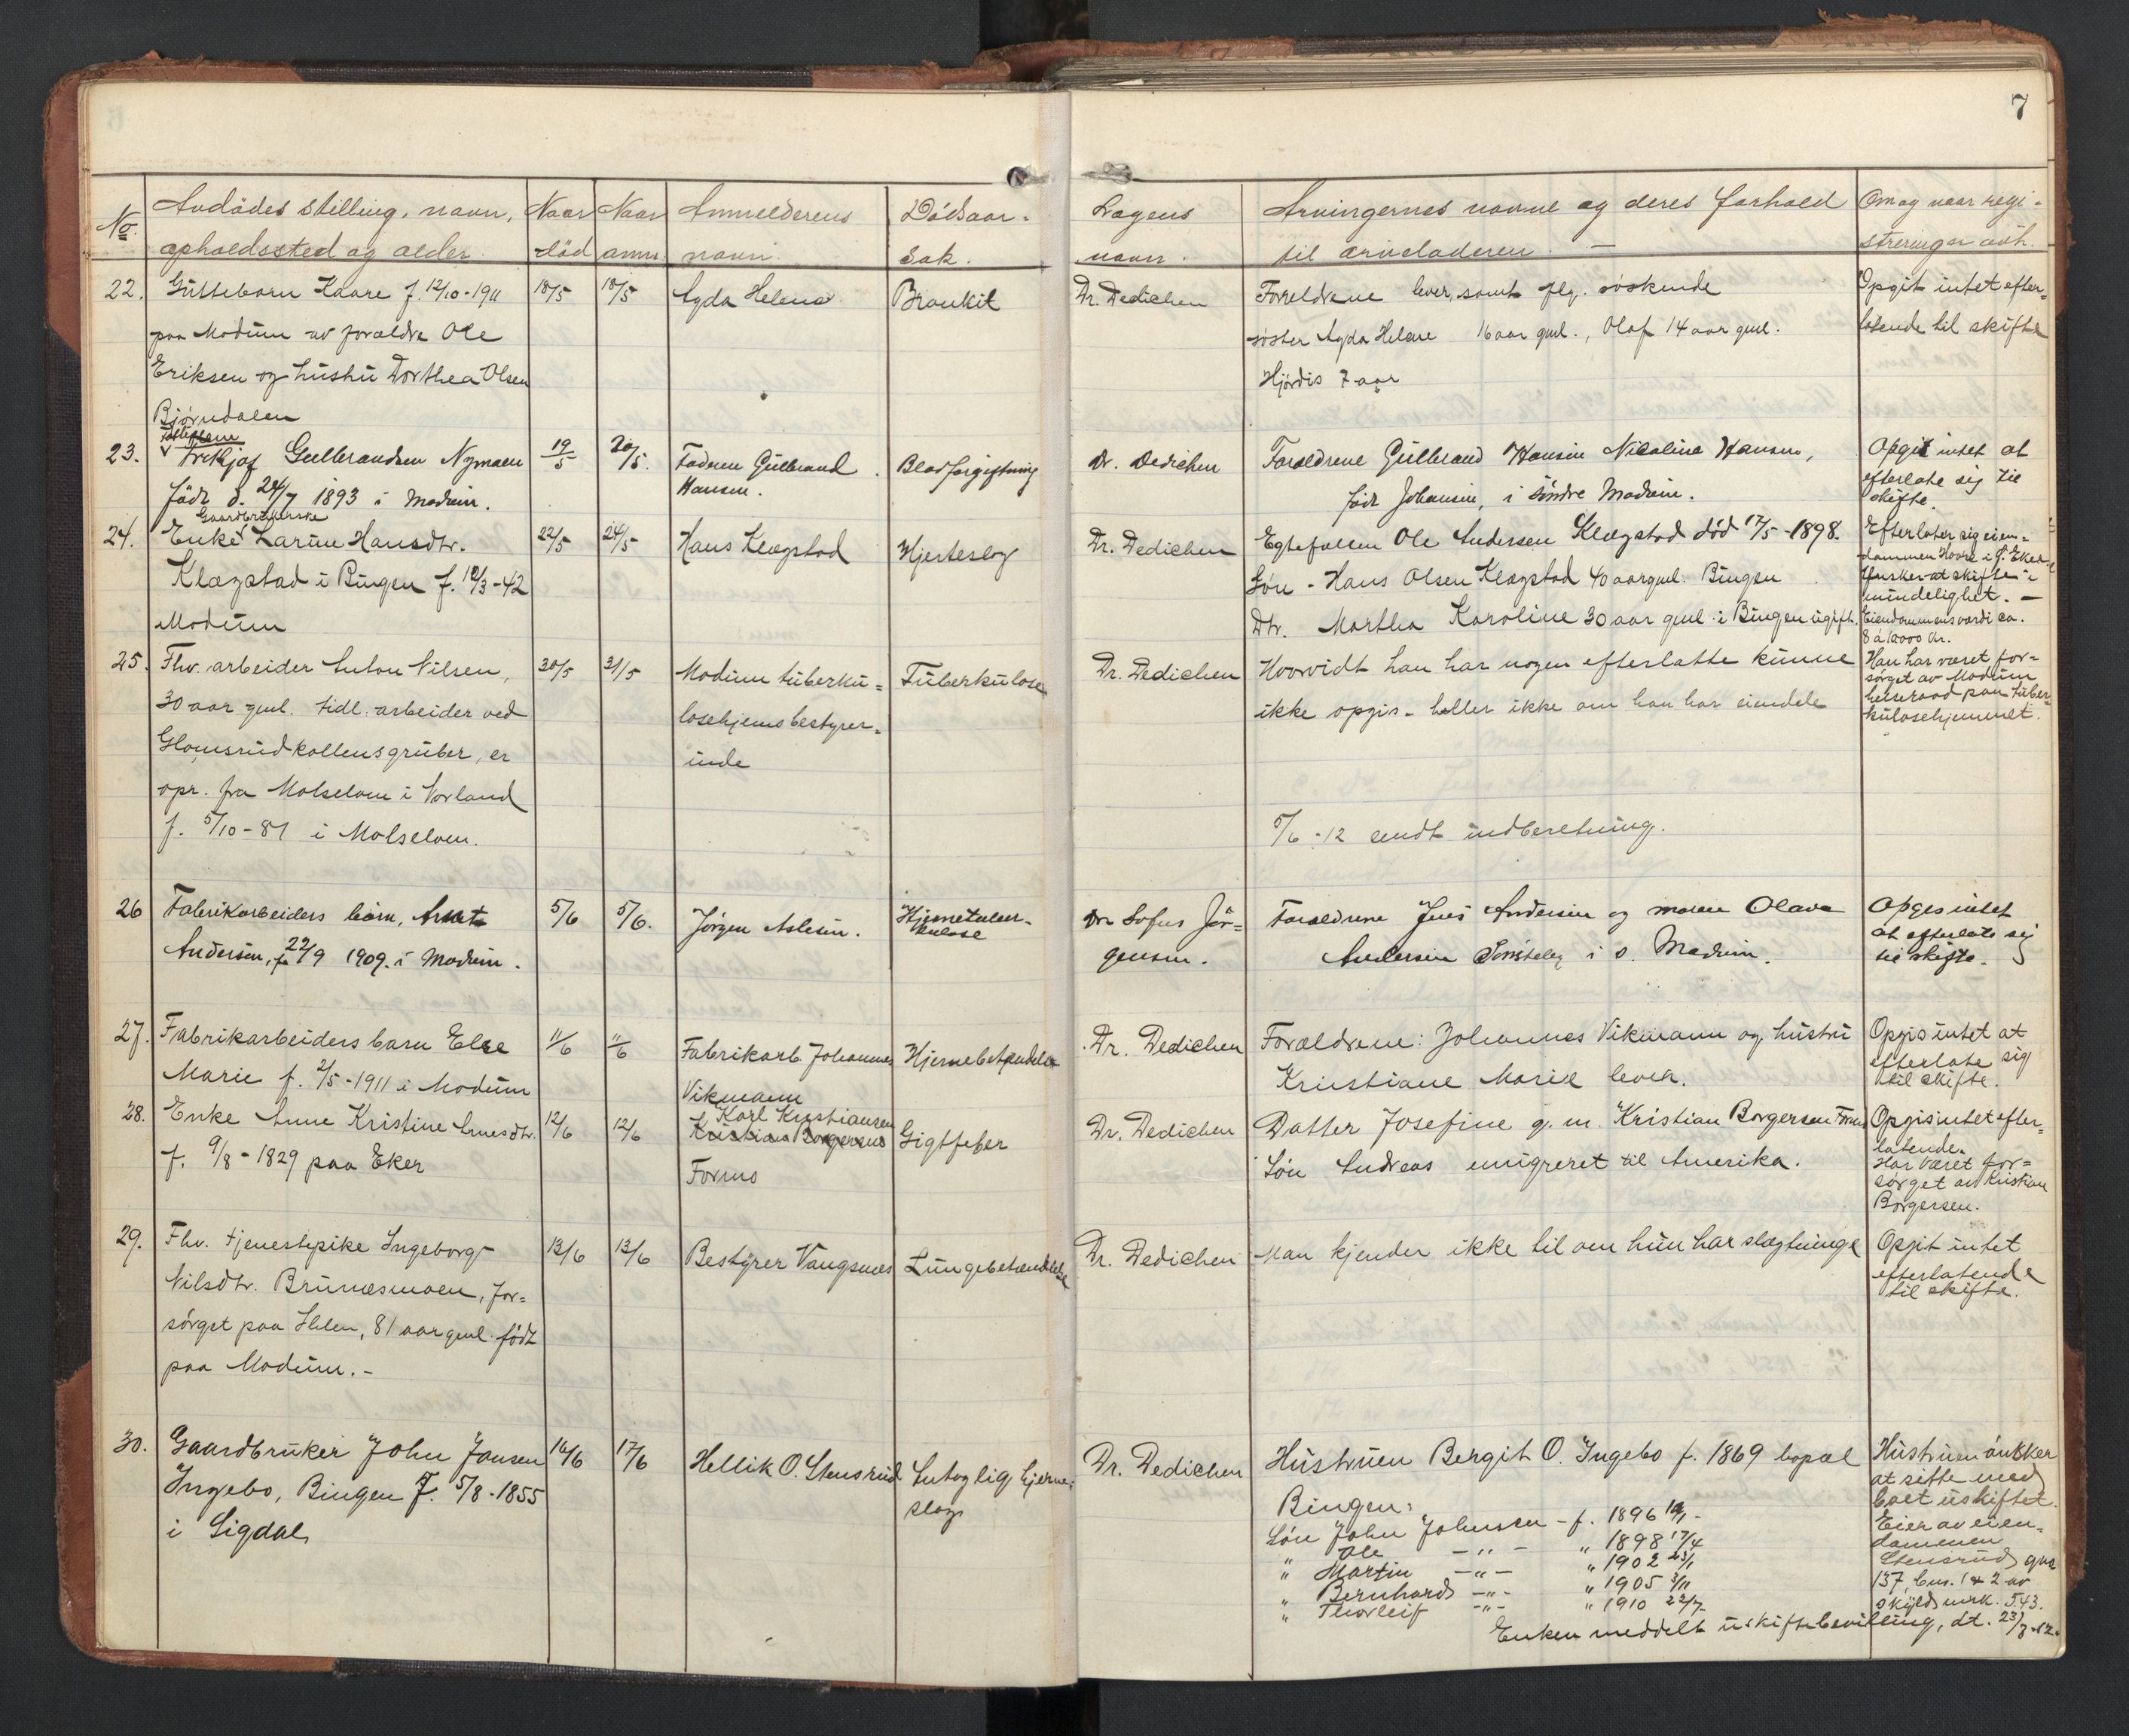 7
No. Avdödes stilling, navn, opholdssted og alder. Naar död Naar anm. Anmelderens navn Dödsaarsak. Lægens navn. Arvingernes navne og deres forhold til arveladeren. — Om og naar registreringer avh.
22. Guttebarn Kaare f. 12/10-1911 18/5 18/5 Agda Helene Bronkit Dr. Dedichen Forældrene lever, samt flg. söskende Opgit intet efter=
paa Modum av forældre Ole söster Agda Helene 16 aar gml., Olaf 14 aar gml. latende til skifte
Eriksen og hustru Dorthea Olsen Hjördis 7 aar
Björndalen
23. Frithjof Gulbrandsen Nymoen 19/5 20/5. Faderen Gulbrand Blodforgiftning Dr. Dedichen Forældrene Gulbrand Hansen Nicoline Hansen, Opgit intet at
född d. 24/7 1893 i Modum. Hansen. född Johansen, i söndre Modum. efterlate sig til
skifte.
Gaardbrukerske
24. Enke Larine Hansdtr. 22/5 24/5 Hans Klægstad Hjerteslag Dr. Dedichen Egtefællen Ole Andersen Klægstad död 17/5-1898. Efterlater sig eien=
dommen Hoore i Ö. Eker.
Klægstad i Bingen f. 12/3-42 Sön - Hans Olsen Klægstad 40 aar gml. Bingen Önsker at skifte i
mindelighet. —
Modum Dtr. Marthea Karoline 30 aar gml. i Bingen ugift. Eiendommens værdi ca.
8 à 10000 kr.
25. Fhv. arbeider Anton Nilsen, 30/5 31/5 Modum tuberku= Tuberkulose Dr. Dedichen Hvorvidt han har nogen efterlatte kunne Han har været for=
sörget av Modum
30 aar gml. tidl. arbeider ved losehjems bestyrer= ikke opgis - heller ikke om han har eiendele helseraad paa tuber=
kulosehjemmet.
Glomsrudkollens gruber, er inde
opr. fra Molselven i Norland
f. 5/10-81 i Molselven. 5/6-12 sendt indberetning.
26 Fabrikarbeiders barn, Arnt 5/6 5/6. Jörgen Aslesen. Hjernetuber- Dr. Sofus Jör= Forældrene Jens Andersen og moren Olava Opges intet
kulose
Andersen, f. 22/9 1909. i Modum. gensen. Andersen i s. Modum. at efterlate sig
til skifte.
27. Fabrikarbeiders barn Else 11/6 11/6 Fabrikarb. Johannes Hjernebetændelse Dr. Dedichen Forældrene: Johannes Vikmann og hustru Opgis intet at
Marie f. 2/5-1911 i Modum Vikmann Kristiane Marie lever. efterlate sig
til skifte.
Karl Kristiansen
28. Enke Anne Kristine Arnesdtr. 12/6 12/6 Kristian Borgersens Gigtfeber Dr. Dedichen Datter Josefine g. m. Kristian Borgersen Formo Opgis intet efter=
latende.
f. 9/8-1829 paa Eker Formo Sön Andreas emigreret til Amerika. Har været for=
sörget av Kristian
Borgersen.
29. Fhv. tjenestepike Ingeborg 13/6 13/6 Bestyrer Vangsnes Lungebetændelse Dr. Dedichen Man kjender ikke til om hun har slægtninge Opgit intet
Nilsdtr. Brunesmoen, for= efterlatende
sörget paa Helen, 81 aar gml. födt til skifte.
paa Modum. -
30. Gaardbruker John Jonsen 16/6 17/6 Hellik O. Stensrud Antagelig hjerne= Dr. Dedichen Hustruen Bergit O. Ingebo f. 1869 bopæl Hustruen önsker
Ingebo, Bingen F. 5/8-1855 slag Bingen: at sitte med
i Sigdal boet uskiftet.
Sön John Johnsen - f. 1896 Eier av eien=
" Ole - " - " 1898 17/4 dommen
" Martin - " - " 1902 23/1 Stensrud gnr.
" Bernhard - " - " 1905 3/11 137, bnr. 1 & 2 av
" Thorleif - " - " 1910 22/7 skyld mrk. 5.43.
Enken meddelt uskiftebevilling, dt. 23/7-12.